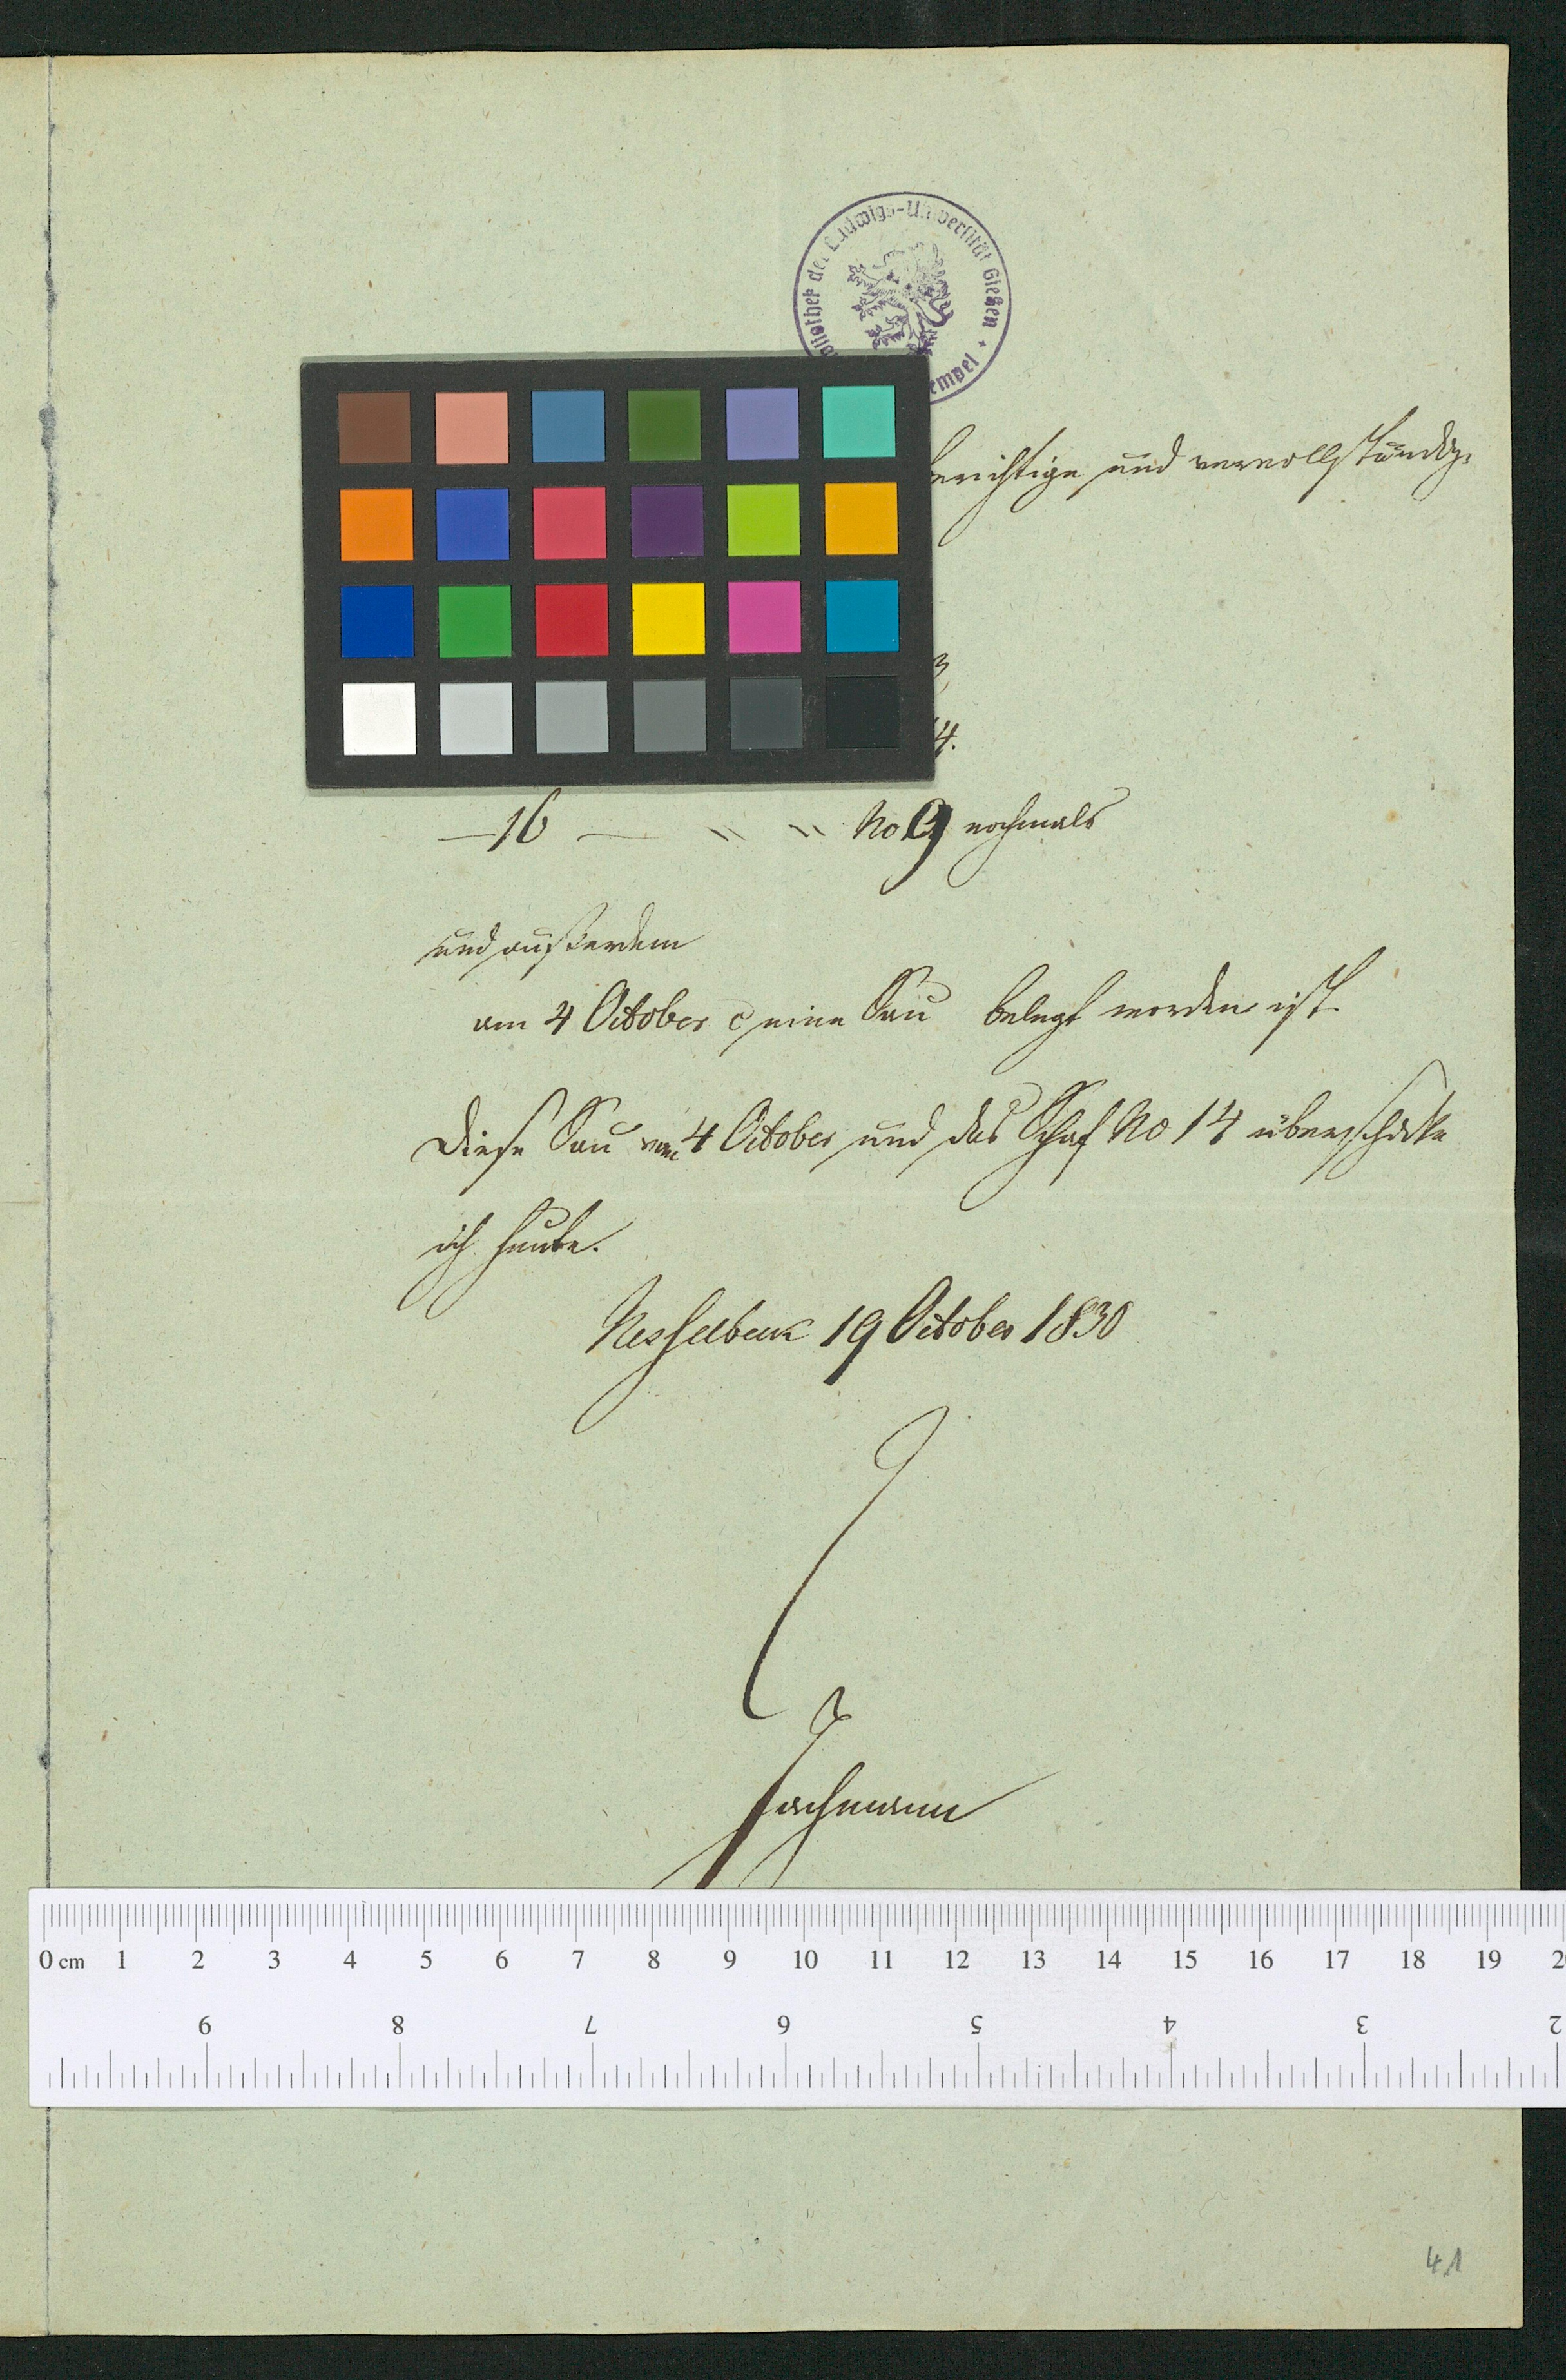 Bibliothek der Ludwigs-Universität Gießen +
berichtige und vervollständig:
3
14.
—16 — " " No 9 nochmals
und außerdem
am 4 October c eine Sau belegt worden ist.
Diese Sau vom 4 October und das Schaf No 14 überschicke
ich heute.
Nesselbeck 19 October 1830
Jachmann
0 cm 1 2 3 4 5 6 7 8 9 10 11 12 13 14 15 16 17 18 19
9 8 7 6 5 4 3 2
41